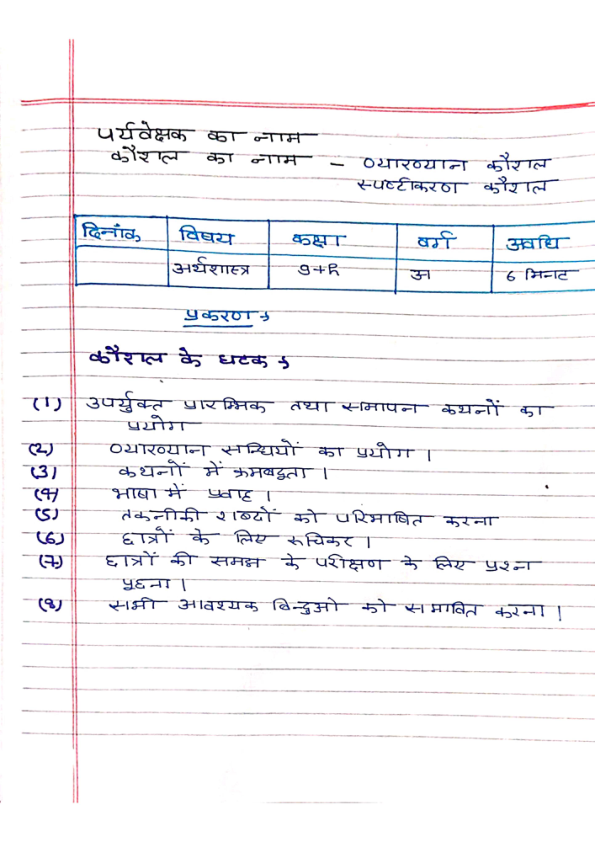 पर्यवेक्षक का नाम
कौशल का नाम – व्याख्यान कौशल
स्पष्टीकरण कौशल
दिनांक विषय कक्षा वर्ग अवधि
अर्थशास्त्र 9th अ 6 मिनट
प्रकरण →
कौशल के घटक →
(1) उपर्युक्त प्रारम्भिक तथा समापन कथनों का
प्रयोग
(2) व्याख्यान सन्धियों का प्रयोग ।
(3) कथनों में क्रमबद्धता ।
(4) भाषा में प्रवाह ।
(5) तकनीकी शब्दों को परिभाषित करना
(6) छात्रों के लिए रुचिकर ।
(7) छात्रों की समझ के परीक्षण के लिए प्रश्न
पूछना ।
(8) सभी आवश्यक बिन्दुओ को समावित करना ।